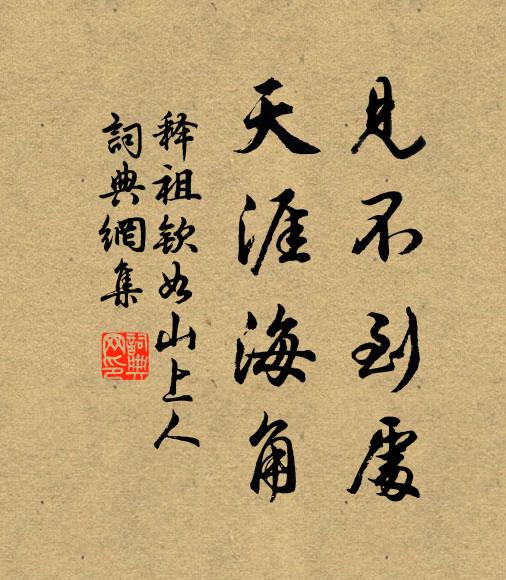 見不到處
天涯海角
释祖钦如山上人
詞典網集
詞典
网印